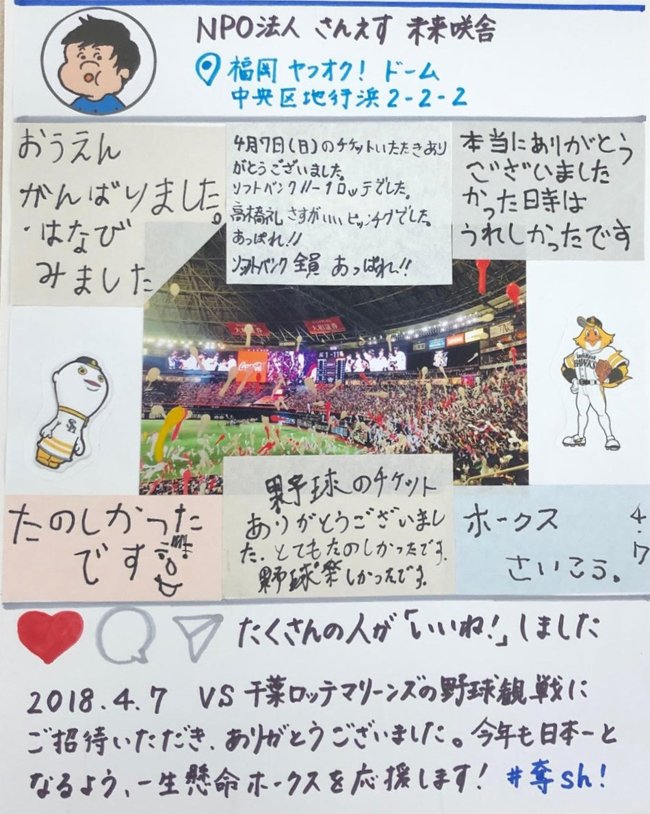 NPO法人 さんえす 未来咲舎
福岡 ヤフオク! ドーム
中央区地行浜2-2-2
おうえん
がんばりました。
・はなび
みました
4月7日(日)のチケットいただきあり
がとうございました。
ソフトバンク11-1ロッテでした。
高橋礼さすがいいピッチグでした。
あっぱれ!!
ソフトバンク全員 あっぱれ!!
本当にありがとう
ございました
かった時は
うれしかったです
たのしかった
です
野球のチケット
ありがとうございまし
た。とてもたのしかったです。
野球楽しかったです。
ホークス
さいこう。
4.7
たくさんの人が「いいね!」しました
2018.4.7 VS 千葉ロッテマリーンズの野球観戦に
ご招待いただき、ありがとうございました。今年も日本一と
なるよう、一生懸命ホークスを応援します! #奪Sh!